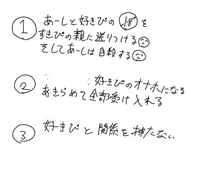 ① あーしと好きぴの⑱を
すきぴの親に送りつける☹
そしてあーしは自殺する☹
② 好きぴのオナホになる
あきらめて全部受け入れる
③ 好きぴと関係を持たない